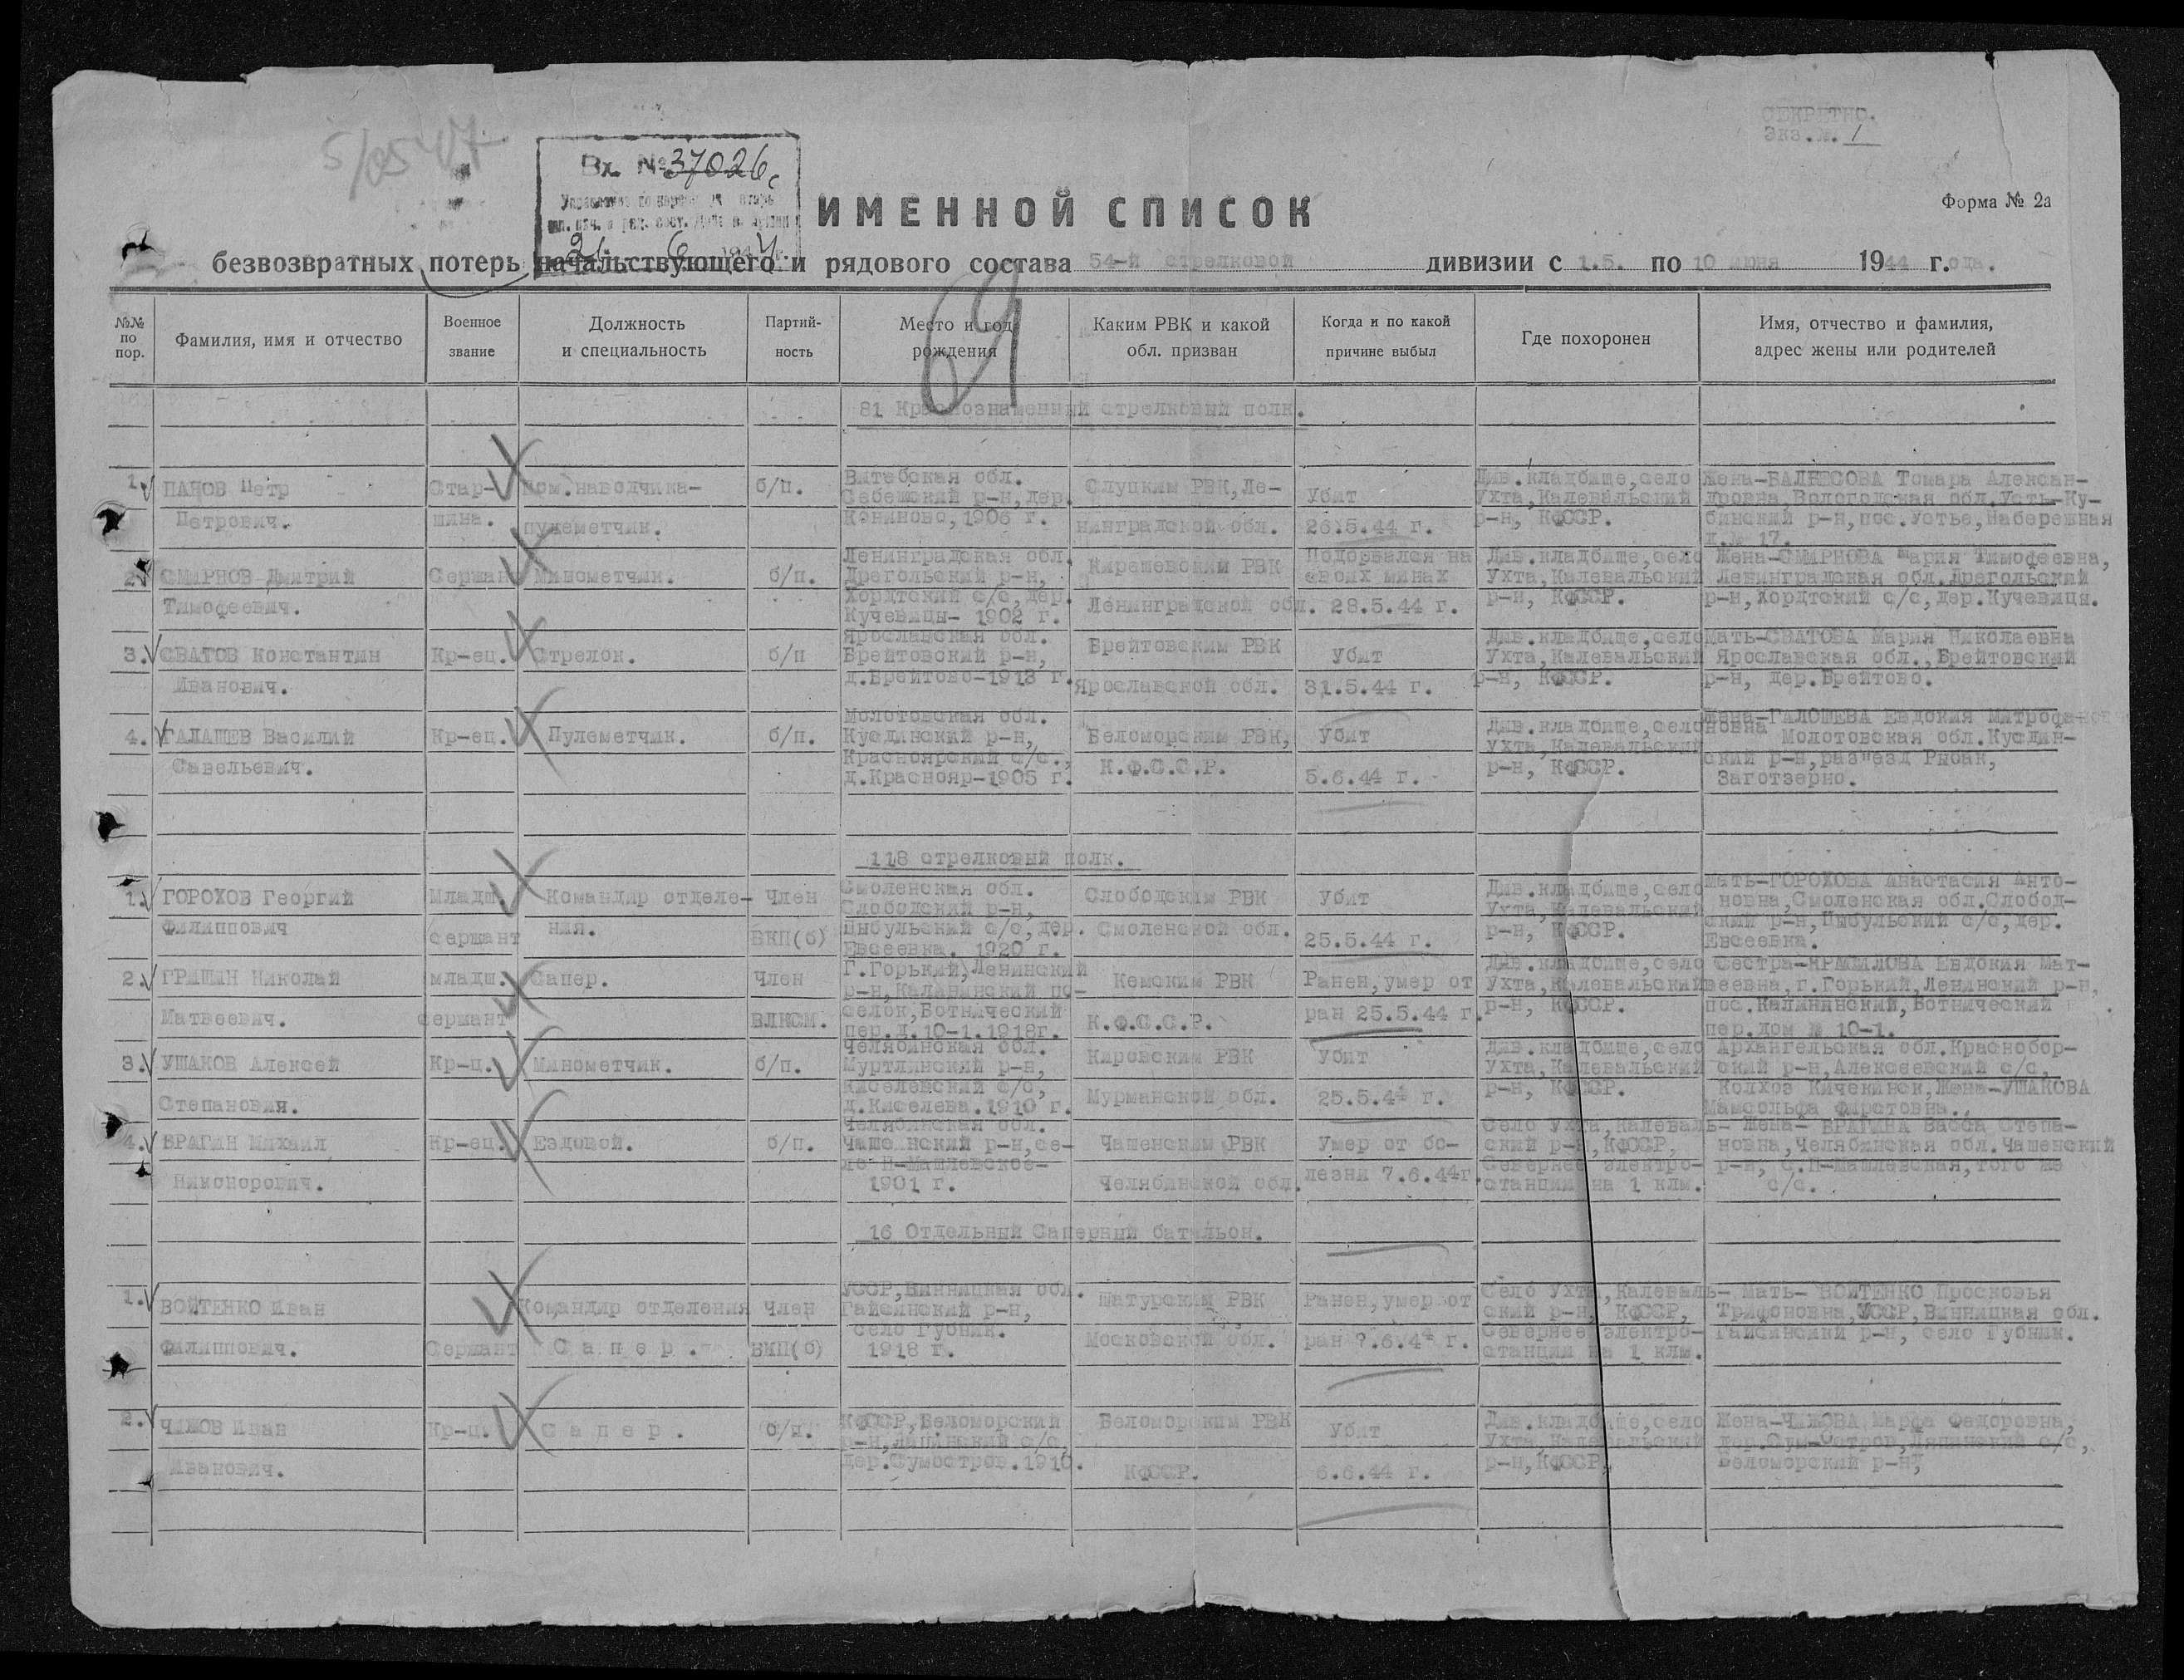 СЕКРЕТНО.
Экз.№. 1
Вх. № 37026с
ИМЕННОЙ СПИСОК
Форма № 2а
безвозвратных потерь начальствующего и рядового состава 54-й стрелковой дивизии с 1.5. по 10 июня 1944 г.ода.
№№ по пор.
Фамилия, имя и отчество
Военное звание
Должность и специальность
Партий-ность
Место и год рождения
Каким РВК и какой обл. призван
Когда и по какой причине выбыл
Где похоронен
Имя, отчество и фамилия, адрес жены или родителей
69
81 Краснознаменный стрелковый полк.
1. ПАНОВ Петр
Петрович.
Стар-
шина.
Пом.наводчика-
пулеметчик.
б/п.
Витебская обл.
Себешский р-н, дер.
Кониново, 1906 г.
Слуцким РВК, Ле-
нинградской обл.
Убит
26.5.44 г.
Див.кладбище, село
Ухта, Калевальский
р-н, КФССР.
Томара Алексан-
дровна, Вологодская обл. Усть-Ку-
бинский р-н, пос.Устье, Набережная
д.№ 17.
2. СМИРНОВ Дмитрий
Тимофеевич.
Сержан
Минометчик.
б/п.
Ленинградская обл.
Дрегольский р-н,
Хордтский с/с, дер.
Кучевицы- 1902 г.
Киришевским РВК
Ленинградской обл.
Подорвался на
своих минах
28.5.44 г.
Див.кладбище, село
Ухта, Калевальский
р-н, КФССР.
Жена-СМИРНОВА Мария Тимофеевна,
Ленинградская обл. Дрегольский
р-н, Хордтский с/с, дер.Кучевицы.
3. СВАТОВ Константин
Иванович.
Кр-ец.
Стрелок.
б/п
Ярославская обл.
Брейтовский р-н,
д.Брейтово-1913 г.
Брейтовским РВК
Ярославской обл.
Убит
31.5.44 г.
Див.кладбище, село
Ухта, Калевальский
р-н, КФССР.
Мать-СВАТОВА Мария Николаевна
Ярославская обл., Брейтовский
р-н, дер.Брейтово.
4. ГАЛАШЕВ Василий
Савельевич.
Кр-ец.
Пулеметчик.
б/п.
Молотовская обл.
Куединский р-н,
Красноярский с/с.,
д.Краснояр-1905 г.
Беломорским РВК,
К.Ф.С.С.Р.
Убит
5.6.44 г.
Див.кладбище, село
Ухта, Калевальский
р-н, КФССР.
Жена-ГАЛОШЕВА Евдокия Митрофа-
новна Молотовская обл. Куедин-
ский р-н, раз"езд Рыбак,
Заготзерно.
118 стрелковый полк.
1. ГОРОХОВ Георгий
Филиппович
Младш.
сержант
Командир отделе-
ния.
Член
ВКП(б)
Смоленская обл.
Слободский р-н,
Цыбульский с/с, дер.
Евсеевка. 1920 г.
Слободским РВК
Смоленской обл.
Убит
25.5.44 г.
Див.кладбище, село
Ухта, Калевальский
р-н, КФССР.
Мать-ГОРОХОВА Анастасия Анто-
новна, Смоленская обл. Слобод-
ский р-н, Цыбульский с/с, дер.
Евсеевка.
2. ГРИШИН Николай
Матвеевич.
младш.
сержант
Сапер.
Член
ВЛКСМ.
Г.Горький, Ленинский
р-н, Калининский по-
селок, Ботнический
пер.д.10-1.1918г.
Кемским РВК
К.Ф.С.С.Р.
Ранен, умер от
ран 25.5.44 г.
Див.кладбище, село
Ухта, Калевальский
р-н, КФССР.
Сестра-КРАСИЛОВА Евдокия Мат-
веевна, г.Горький, Ленинский р-н,
пос. Калининский, Ботнический
пер.дом № 10-1.
3. УШАКОВ Алексей
Степанович.
Кр-ц.
Минометчик.
б/п.
Челябинская обл.
Муртлинский р-н,
Киселевский с/с,
д.Киселева.1910 г.
Кировским РВК
Мурманской обл.
Убит
25.5.44 г.
Див.кладбище, село
Ухта, Калевальский
р-н, КФССР.
Архангельская обл. Краснобор-
ский р-н, Алексеевский с/с,
Колхоз Киченинск, Жена-УШАКОВА
Фирстовна.
4. БРАГИН Михаил
Никонорович.
Кр-ец.
Ездовой.
б/п.
Челябинская обл.
р-н, се-
ло
1901 г.
Чашенским РВК
Челябинской обл.
Умер от бо-
лезни 7.6.44г.
Село Ухта, Каleваль-
ский р-н, КФССР,
Севернее электро-
станции на 1 клм.
Жена- БРАГИНА Васса Степа-
новна, Челябинская обл. Чашенский
р-н, того же
с/с.
16 Отдельный Саперный батальон.
1. ВОЙТЕНКО Иван
Филиппович.
Сержант
Командир отделения
С а п е р .
Член
ВКП(б)
УССР, Винницкая обл.
Гайсинский р-н,
село Губник.
1918 г.
Шатурским РВК
Московской обл.
Ранен, умер от
ран 7.6.44 г.
Село Ухта, Калеваль-
ский р-н, КФССР,
Севернее электро-
станции на 1 клм.
Мать- ВОЙТЕНКО Просковья
Трифоновна, УССР, Винницкая обл.
Гайсинский р-н, село Губник.
2. ЧИЖОВ Иван
Иванович.
Кр-ц.
С а п е р .
б/п.
КФССР, Беломорский
р-н, Лапинский с/с,
дер.Сумостров.1910.
Беломорским РВК
КФССР.
Убит
6.6.44 г.
Див.кладбище, село
Ухта, Калевальский
р-н, КФССР.
Жена-ЧИЖОВА Марфа Федоровна,
с/с,
Беломорский р-н,